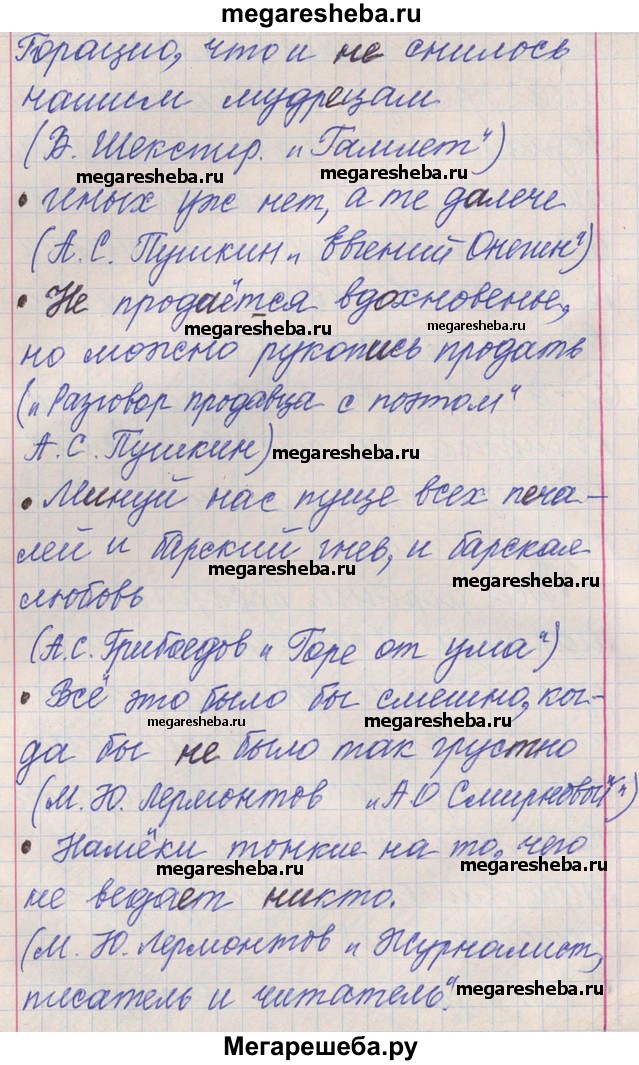 megaresheba.ru
Горацио, что и не снилось
нашим мудрецам
(В. Шекспир. „Гамлет“)
megaresheba.ru megaresheba.ru
• Иных уж нет, а те далече
(А. С. Пушкин „Евгений Онегин“)
• Не продаётся вдохновенье,
megaresheba.ru megaresheba.ru
но можно рукопись продать
(„Разговор продавца с поэтом“
А. С. Пушкин) megaresheba.ru
• Минуй нас пуще всех печа-
лей и барский гнев, и барская
megaresheba.ru megaresheba.ru
любовь
(А.С. Грибоедов „Горе от ума“)
• Всё это было бы смешно, ког-
megaresheba.ru megaresheba.ru
да бы не было так грустно
(М. Ю. Лермонтов „А.О Смирновой“)
• Намёки тонкие на то, чего
megaresheba.ru megaresheba.ru
не ведает никто.
(М. Ю. Лермонтов „Журналист,
писатель и читатель“. megaresheba.ru
Мегарешеба.ру